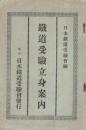 日本鐵道受驗會編
鐵道受驗立身案内
日本鐵道受驗會發行